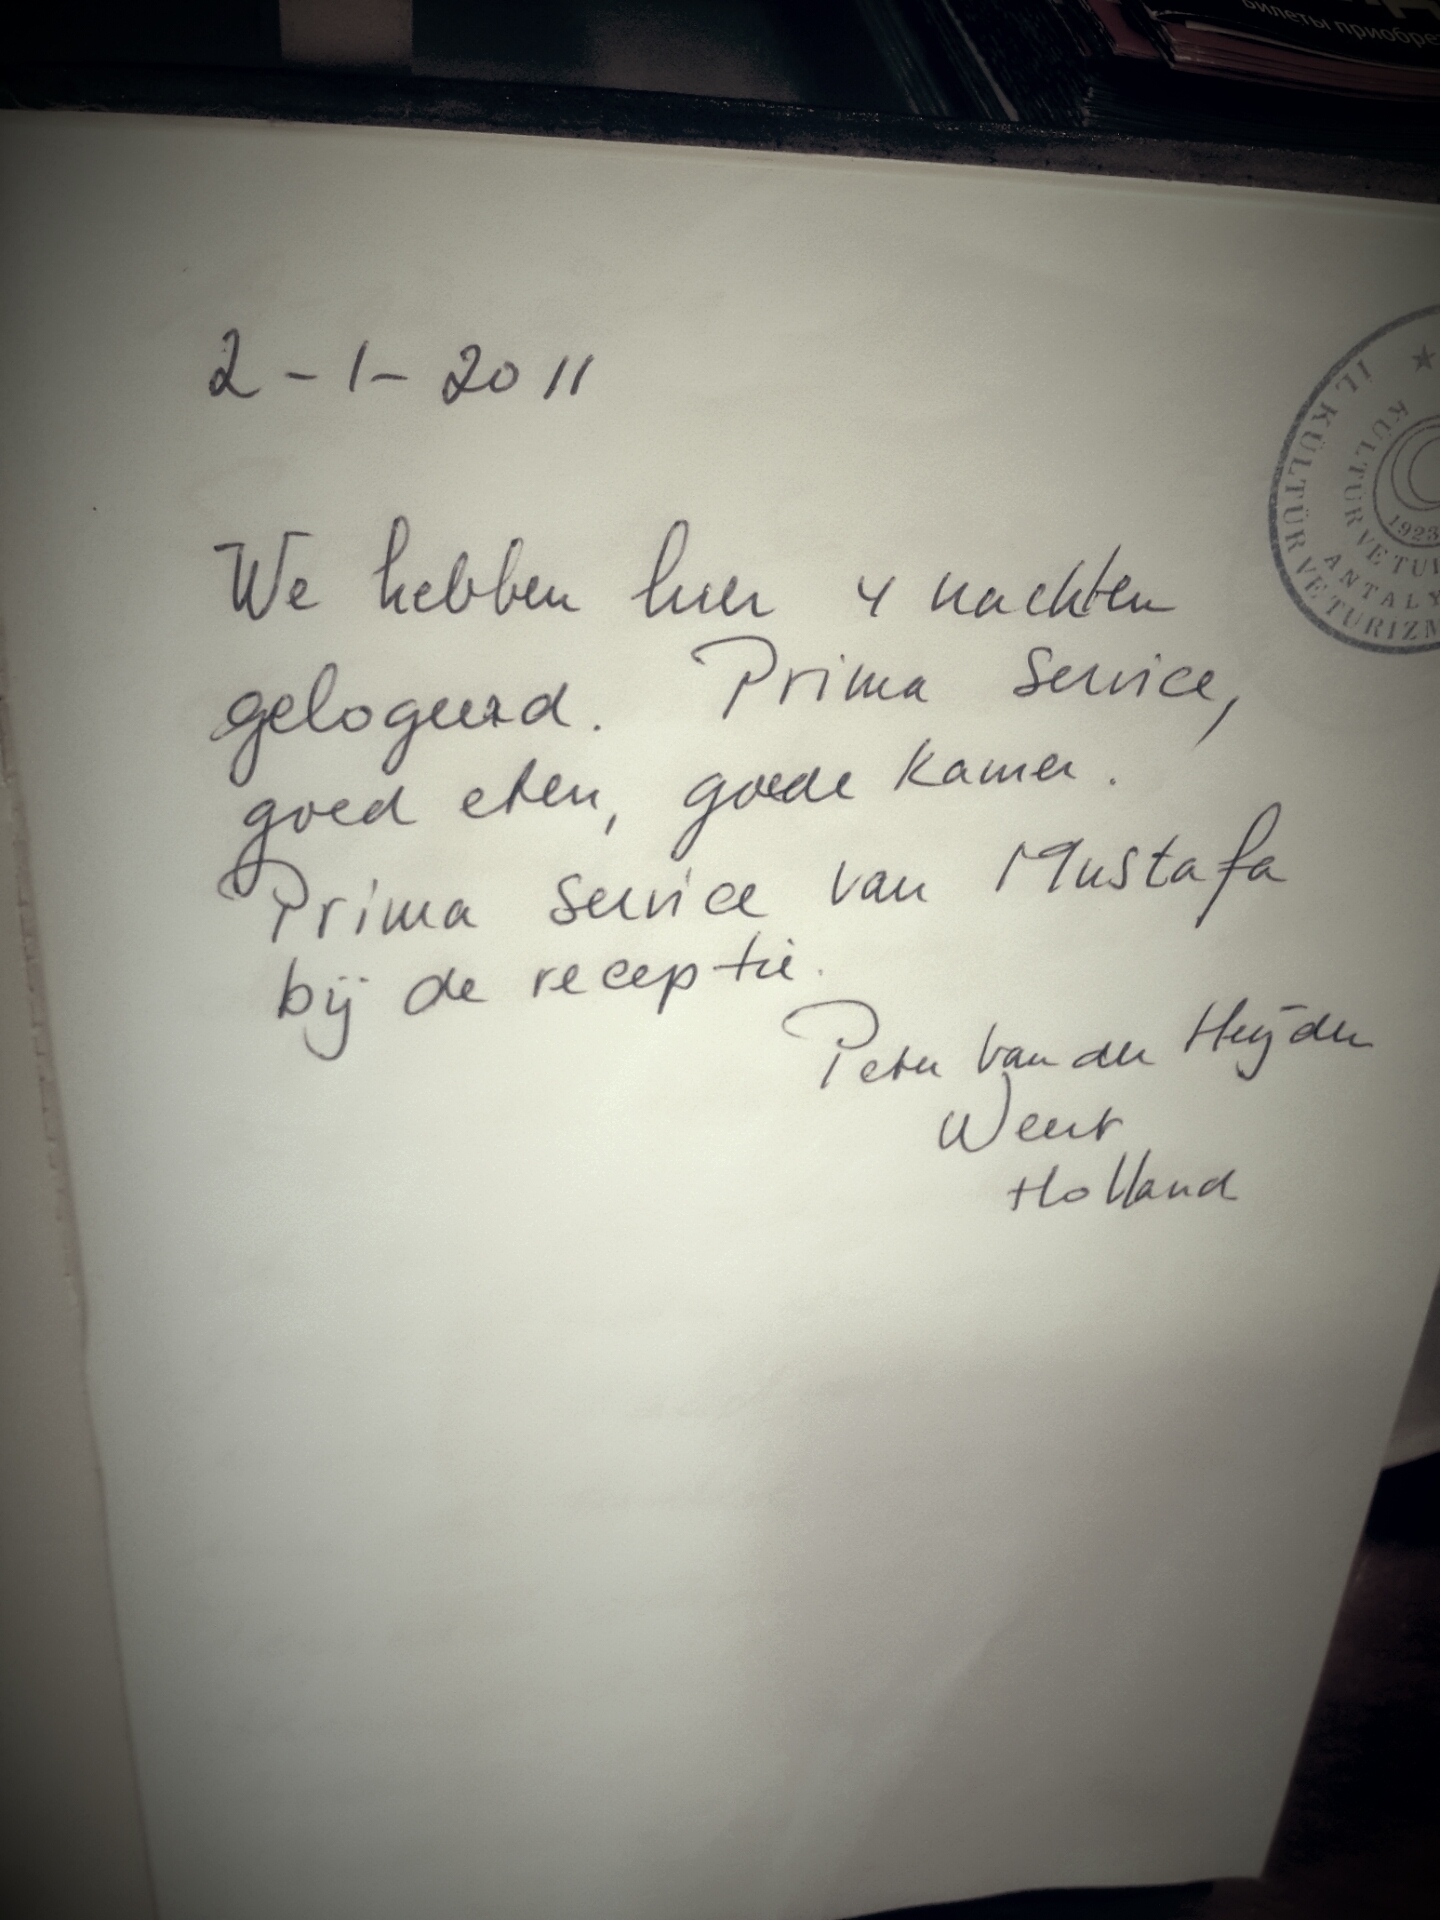 билеты приобре
2-1-2011
We hebben hier 4 nachten
gelogeerd. Prima service,
goed eten, goede kamer.
Prima service van Mustafa
bij de receptie.
Peter van der Heijden
Weert
Holland
İL KÜLTÜR VE TURİZM
KÜLTÜR VE TURİ
ANTALY
1923